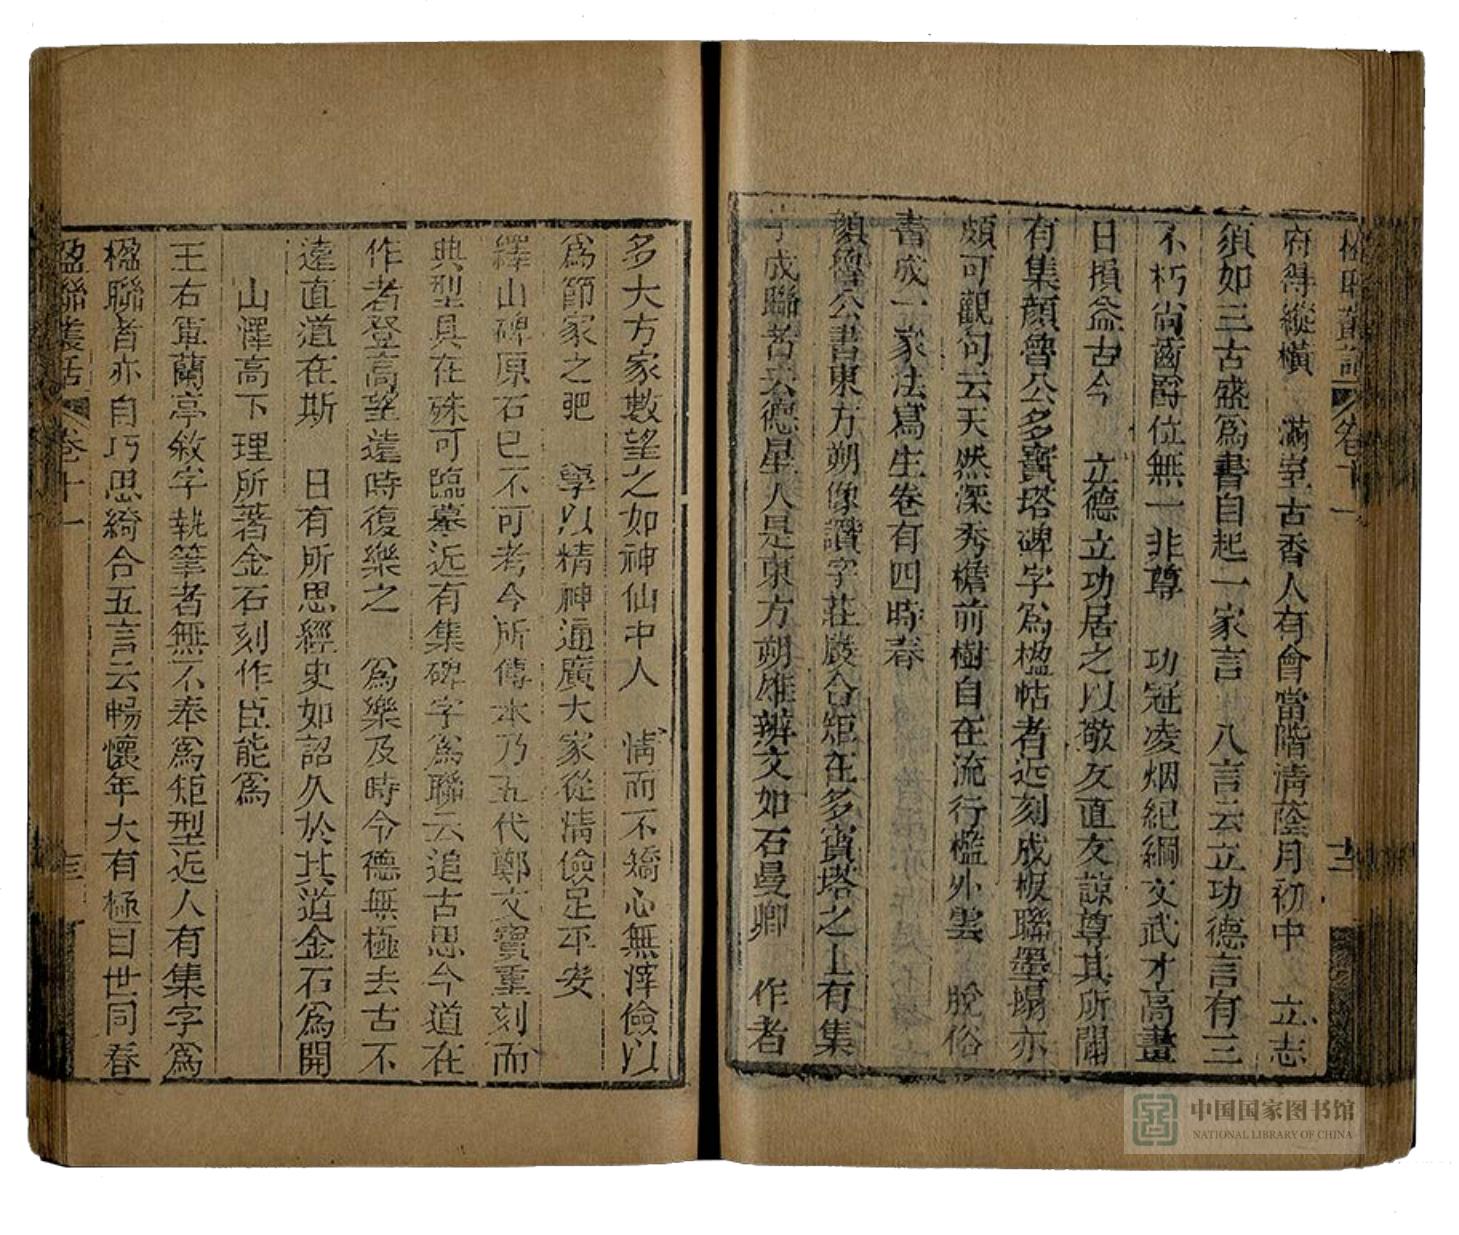 楹聯叢話 卷十一
府得縱橫 滿室古香人有會當階清蔭月初中 立志
須如三古盛爲書自起一家言 八言云立功德言有三
不朽尚齒爵位無一非尊 功冠凌烟紀綱文武才高畫
日損益古今 立德立功居之以敬友直友諒尊其所聞
有集顏魯公多寶塔碑字爲楹帖者近刻成板聯墨搨亦
頗可觀句云天然深秀檐前樹自在流行檻外雲 脫俗
書成一家法寫生卷有四時春
顏魯公書東方朔像讚字莊嚴合矩在多寶塔之上有集
字成聯者云德星人是東方朔雄辨文如石曼卿 作者
多大方家數望之如神仙中人 情而不矯心無滓儉以
爲節家之肥 學以精神通廣大家從清儉足平安
繹山碑原石已不可考今所傳本乃五代鄭文寶重刻而
典型具在殊可臨摹近有集碑字爲聯云追古思今道在
作者登高望遠時復樂之 爲樂及時令德無極去古不
遠直道在斯 日有所思經史如詔久於其道金石爲開
山澤高下理所著金石刻作臣能爲
王右軍蘭亭敘字執筆者無不奉爲矩型近人有集字爲
楹聯者亦自巧思綺合五言云暢懷年大有極目世同春
楹聯叢話 卷十一
中国国家图书馆
NATIONAL LIBRARY OF CHINA